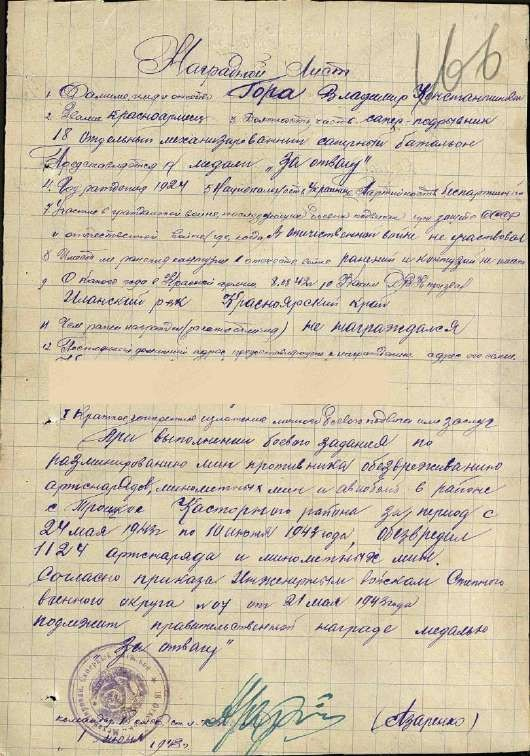 16б
Наградной Лист
1. Фамилия имя и отчество Гора Владимир Константинович
2. Звание красноармеец 3. Должность часть сапер-подрывник
18 отдельный механизированный саперный батальон
Представляется к медали „За отвагу"
4. Год рождения 1924 5 Национальность Украинец Партийность беспартийный
7 Участие в гражданской войне, последующих боевых действиях при защите СССР
и отечественной войне (где, когда) в отечественной войне не участвовал
8 Имеет ли ранения и контузии в отечеств войне ранений и контузий не имеет
9 С какого года в Красной армии 8.08.42г 10 Каким РВК призван
Иланский рвк Красноярский край
11 Чем ранее награжден (за что) не награждался
12. Постоянный домашний адрес представляемого к награждению адрес его семьи
I Краткое конкретное изложение личного боевого подвига или заслуг
При выполнении боевого задания по
разминированию мин противника обезвреживанию
артснарядов, минометных мин и авиабомб в районе
с Троицкое Касторного района за период с
24 мая 1943г по 10 июня 1943 года, обезвредил
1124 артснаряда и минометных мин.
Согласно приказа Инженерным войскам Степного
военного округа №04 от 21 мая 1943 года
подлежит правительственной награде медалью
„За отвагу"
командир
(Азаренко)
июня 1943г